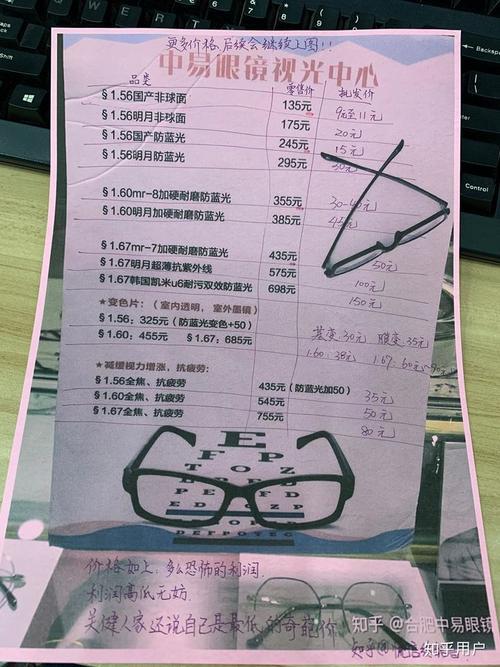 更多价格,后续会继续上图!!
中易眼镜视光中心
品类 零售价 批发价
§1.56国产非球面 135元 9元至11元
§1.56明月非球面 175元 20元
§1.56国产防蓝光 245元 15元
§1.56明月防蓝光 295元 30元
§1.60mr-8加硬耐磨防蓝光 355元 30-40元
§1.60明月加硬耐磨防蓝光 385元 45元
§1.67mr-7加硬耐磨防蓝光 435元 50元
§1.67明月超薄抗紫外线 575元 100元
§1.67韩国凯米u6耐污双效防蓝光 698元 150元
★变色片:(室内透明,室外墨镜)
§1.56:325元(防蓝光变色+50) 基变30元 膜变35元
§1.60:455元 §1.67:685元 1.60:38元 1.67:60元~90元
★减缓视力增涨,抗疲劳:
§1.56全焦、抗疲劳 435元(防蓝光加50) 35元
§1.60全焦、抗疲劳 545元 50元
§1.67全焦、抗疲劳 755元 80元
E
F P
T O Z
L P E D
P E C F D
E D F C Z P
DEFPOTEC
价格如上:多么恐怖的利润.
利润高低无妨.
关健人家还说自己是最低的奇葩价
知乎 @合肥中易眼镜
知乎用户